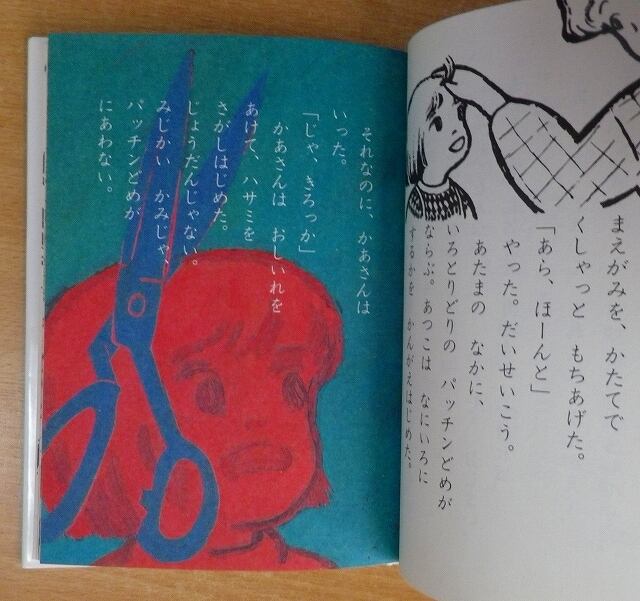 まえがみを、かたてで
くしゃっと もちあげた。
「あら、ほーんと」
やった。だいせいこう。
あたまの なかに、
いろとりどりの パッチンどめが
ならぶ。あつこは なにいろに
するかを かんがえはじめた。
それなのに、かあさんは
いった。
「じゃ、きろっか」
かあさんは おしいれを
あけて、ハサミを
さがしはじめた。
じょうだんじゃない。
みじかい かみじゃ、
パッチンどめが
にあわない。